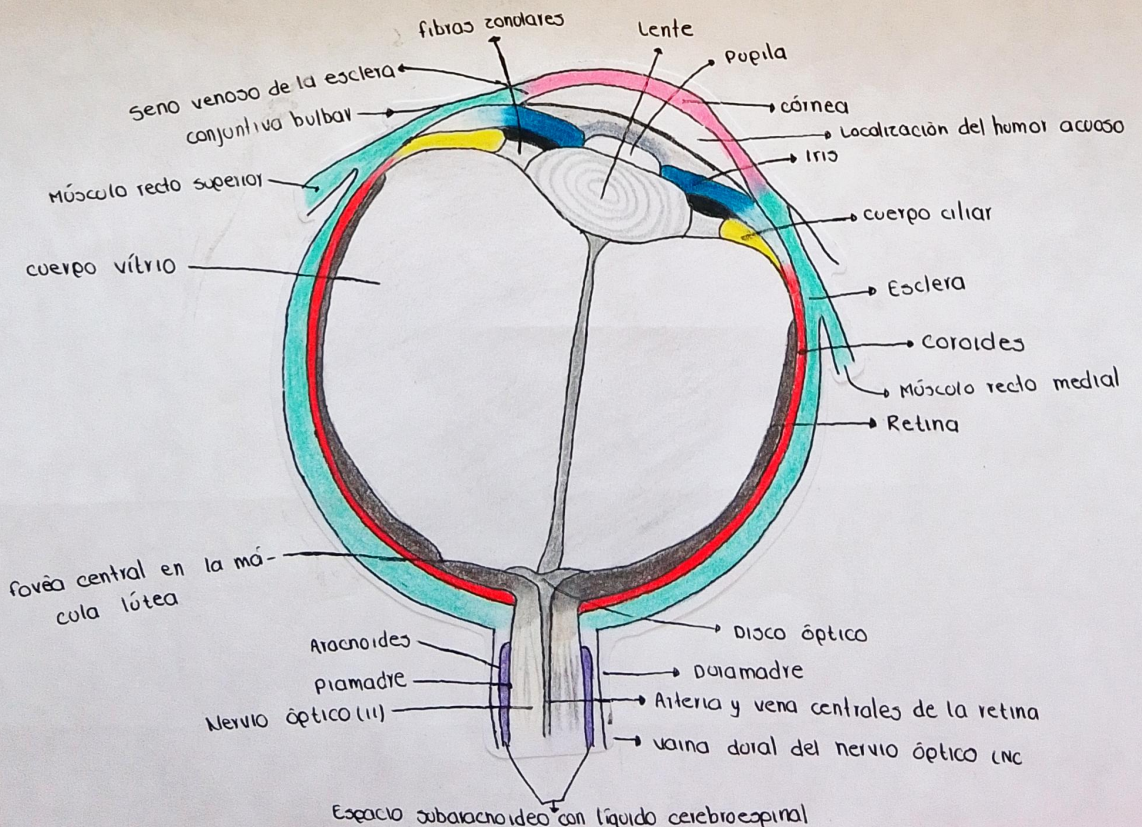 fibras zonulares
Lente
Pupila
seno venoso de la esclera
córnea
conjuntiva bulbar
Localización del humor acuoso
Iris
Músculo recto superior
cuerpo ciliar
cuerpo vítrio
Esclera
Coroides
Músculo recto medial
Retina
Fovéa central en la má-
cula lútea
Disco óptico
Aracnoides
Duramadre
Piamadre
Arteria y vena centrales de la retina
Nervio óptico (II)
vaina dural del nervio óptico (NC
Espacio subaracnoideo con líquido cerebroespinal